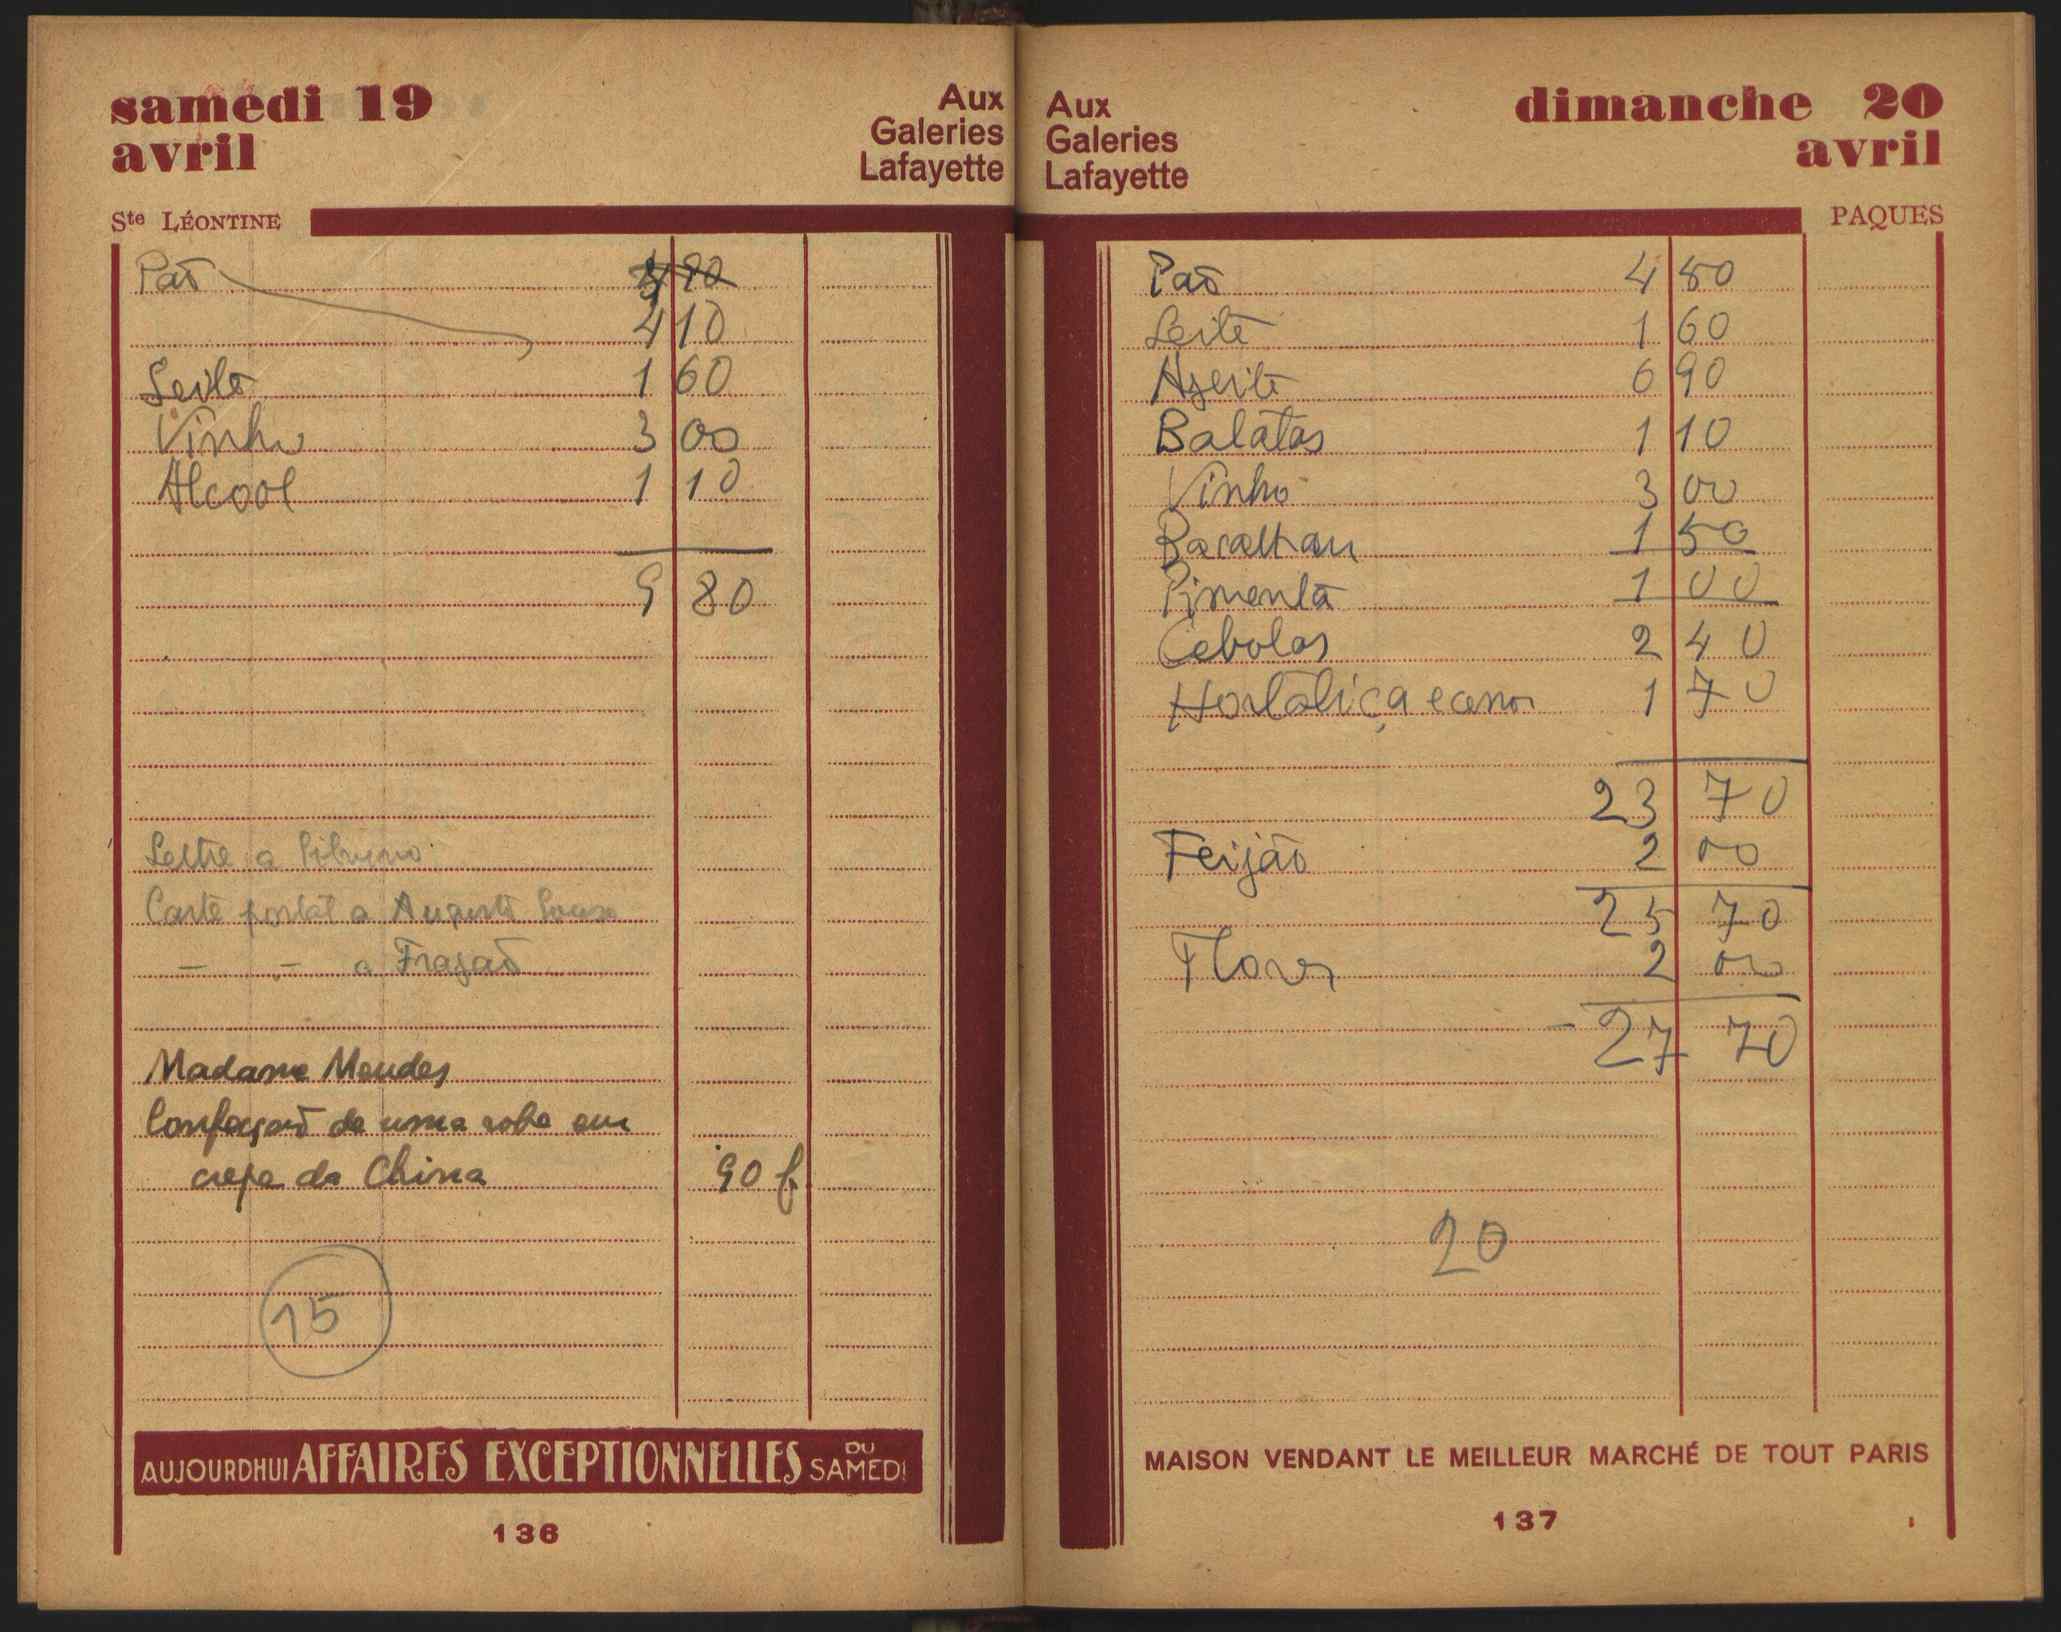 samedi 19
avril
Aux
Galeries
Lafayette
Ste LÉONTINE
Paõ 90
4 10
Leite 1 60
Vinho 3 00
Alcool 1 10
9 80
Lettre a
Carte postal a Auguste
— — a Fragaõ
Madame Mendes
Confeçaõ de uma robe em
crepe da China 90 f.
15
AUJOURDHUI AFFAIRES EXCEPTIONNELLES DU SAMEDI
136
Aux
Galeries
Lafayette
dimanche 20
avril
PAQUES
Paõ 4 50
Leite 1 60
Azeite 6 90
Batatas 1 10
Vinho 3 00
Bacalhau 1 50
Pimenta 1 00
Cebolas 2 40
Hortaliça 1 70
23 70
Feijão 2 00
25 70
Flores 2 00
27 70
20
MAISON VENDANT LE MEILLEUR MARCHÉ DE TOUT PARIS
137